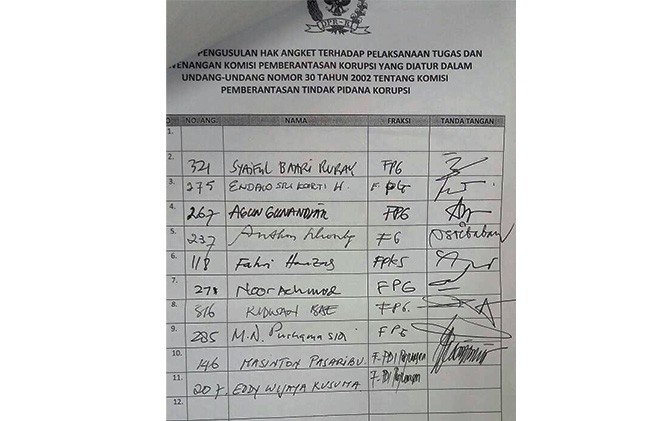 DPR-R
PENGUSULAN HAK ANGKET TERHADAP PELAKSANAAN TUGAS DAN
WENANGAN KOMISI PEMBERANTASAN KORUPSI YANG DIATUR DALAM
UNDANG-UNDANG NOMOR 30 TAHUN 2002 TENTANG KOMISI
PEMBERANTASAN TINDAK PIDANA KORUPSI
NO. ANG. NAMA FRAKSI TANDA TANGAN
1.
2. 321 SYAIFUL FPG
3. 275 H.
4. 267 AGUN GUNANDJAR FPG
5. 237 FG
6. 118 Fahri Hamzah FPKS
7. 278 Noor Achmad FPG
8. 316 FPG.
9. 285 M.N. FPG
10. 146 MASINTON PASARIBU. F-PDI Perjuangan
11. 207. EDDY WIJAYA KUSUMA F-PDI Perjuangan
12.